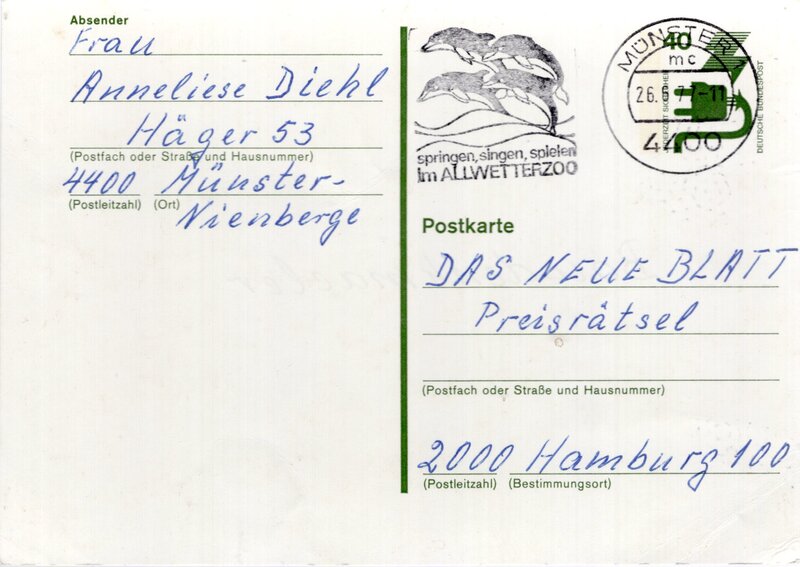 Absender
Frau
Anneliese Diehl
Häger 53
(Postfach oder Straße und Hausnummer)
4400 Münster-
(Postleitzahl) (Ort)
Nienberge
springen, singen, spielen
im ALLWETTERZOO
MÜNSTER 1
mc
26.6.77-11
4400
40
JEDERZEIT SICHERHEIT
DEUTSCHE BUNDESPOST
Postkarte
DAS NEUE BLATT
Preisrätsel
(Postfach oder Straße und Hausnummer)
2000 Hamburg 100
(Postleitzahl) (Bestimmungsort)